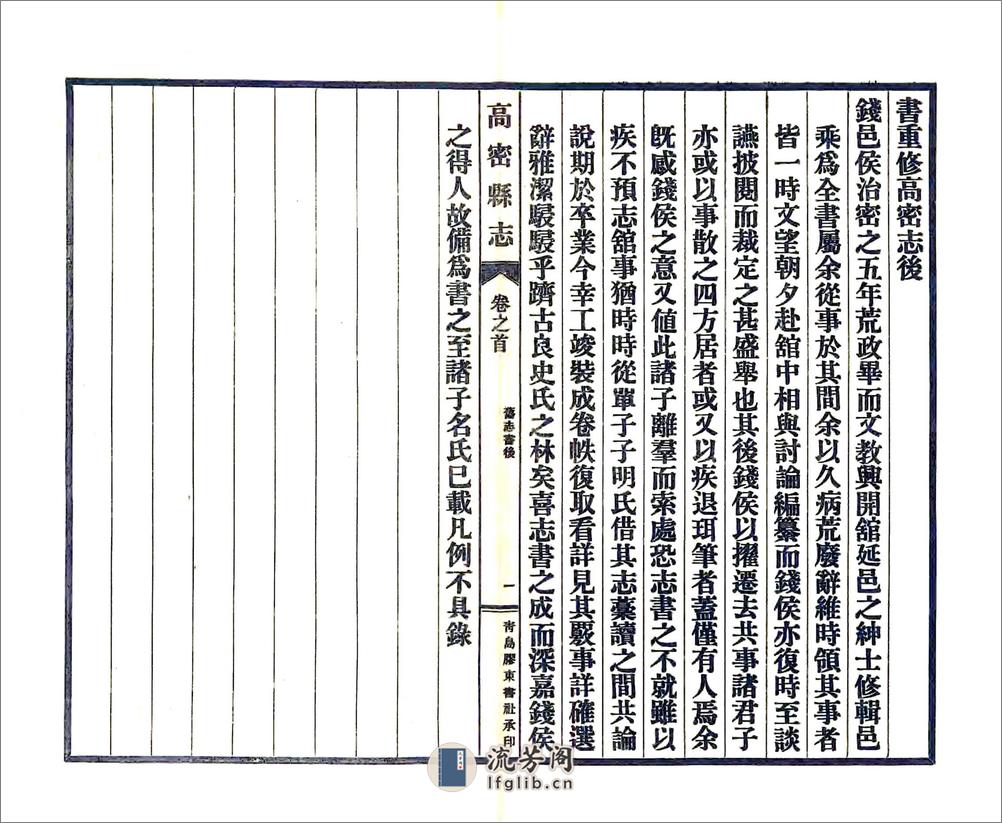 書重修高密志後
錢邑侯治密之五年荒政畢而文教興開舘延邑之紳士修輯邑
乘爲全書屬余從事於其間余以久病荒廢辭維時領其事者
皆一時文望朝夕赴舘中相與討論編纂而錢侯亦復時至談
讌披閱而裁定之甚盛舉也其後錢侯以擢遷去共事諸君子
亦或以事散之四方居者或又以疾退珥筆者蓋僅有人焉余
旣感錢侯之意又値此諸子離羣而索處恐志書之不就雖以
疾不預志舘事猶時時從單子子明氏借其志藁讀之間共論
說期於卒業今幸工竣裝成卷帙復取看詳見其覈事詳確選
辭雅潔駸駸乎躋古良史氏之林矣喜志書之成而深嘉錢侯
高密縣志
卷之首
舊志書後
一
靑島膠東書社承印
之得人故備爲書之至諸子名氏已載凡例不具錄
流芳阁
lfglib.cn